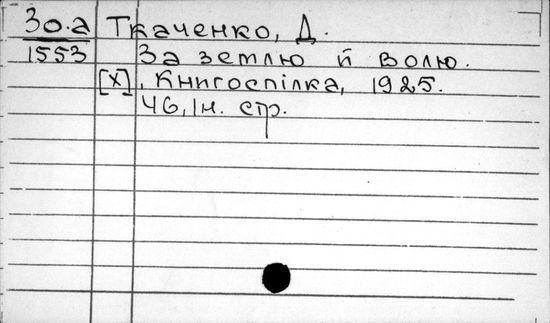 Зо.а Ткаченко, Д.
1553 За землю й волю.
[Х], Книгоспілка, 1925.
46, Iн. стр.